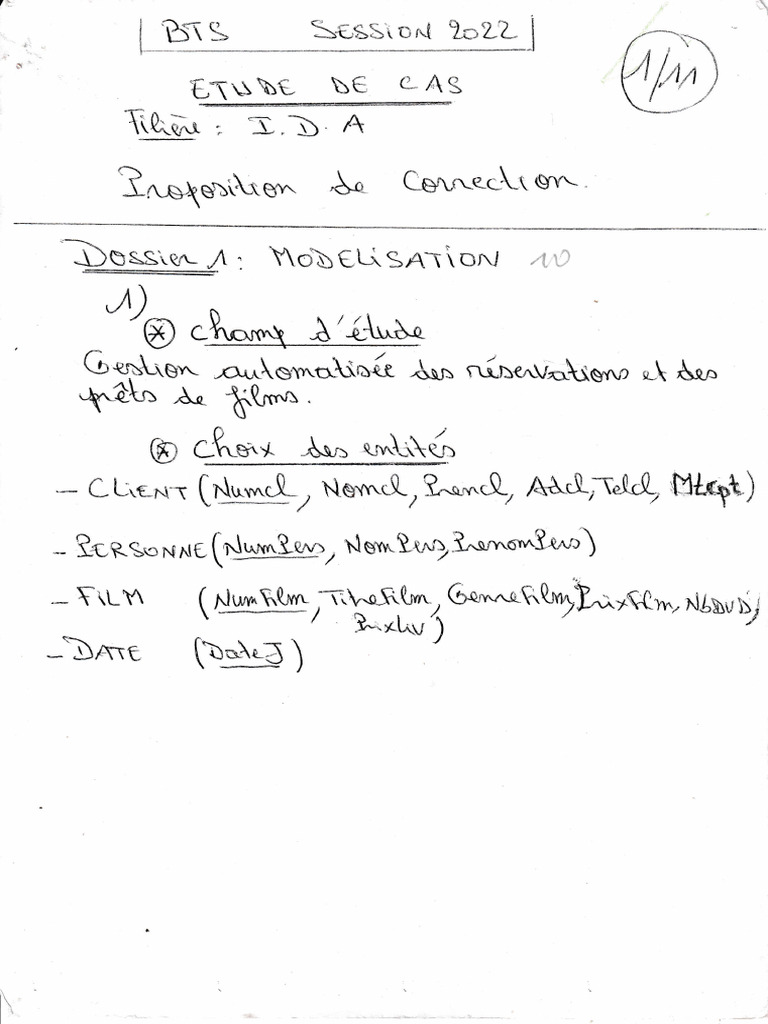 BTS SESSION 2022
1/11
ETUDE DE CAS
Filière : I.D.A
Proposition de Correction.
Dossier 1 : MODELISATION 10
1)
* champ d'étude
Gestion automatisée des réservations et des
prêts de films.
* choix des entités
- CLIENT (Numcl, Nomcl, Prencl, Adcl, Telcl, Mtcpt)
- PERSONNE (NumPers, NomPers, PrenomPers)
- FILM (NumFilm, TitreFilm, GenreFilm, PrixFilm, NbDVD,
PrixLiv)
- DATE (DateJ)